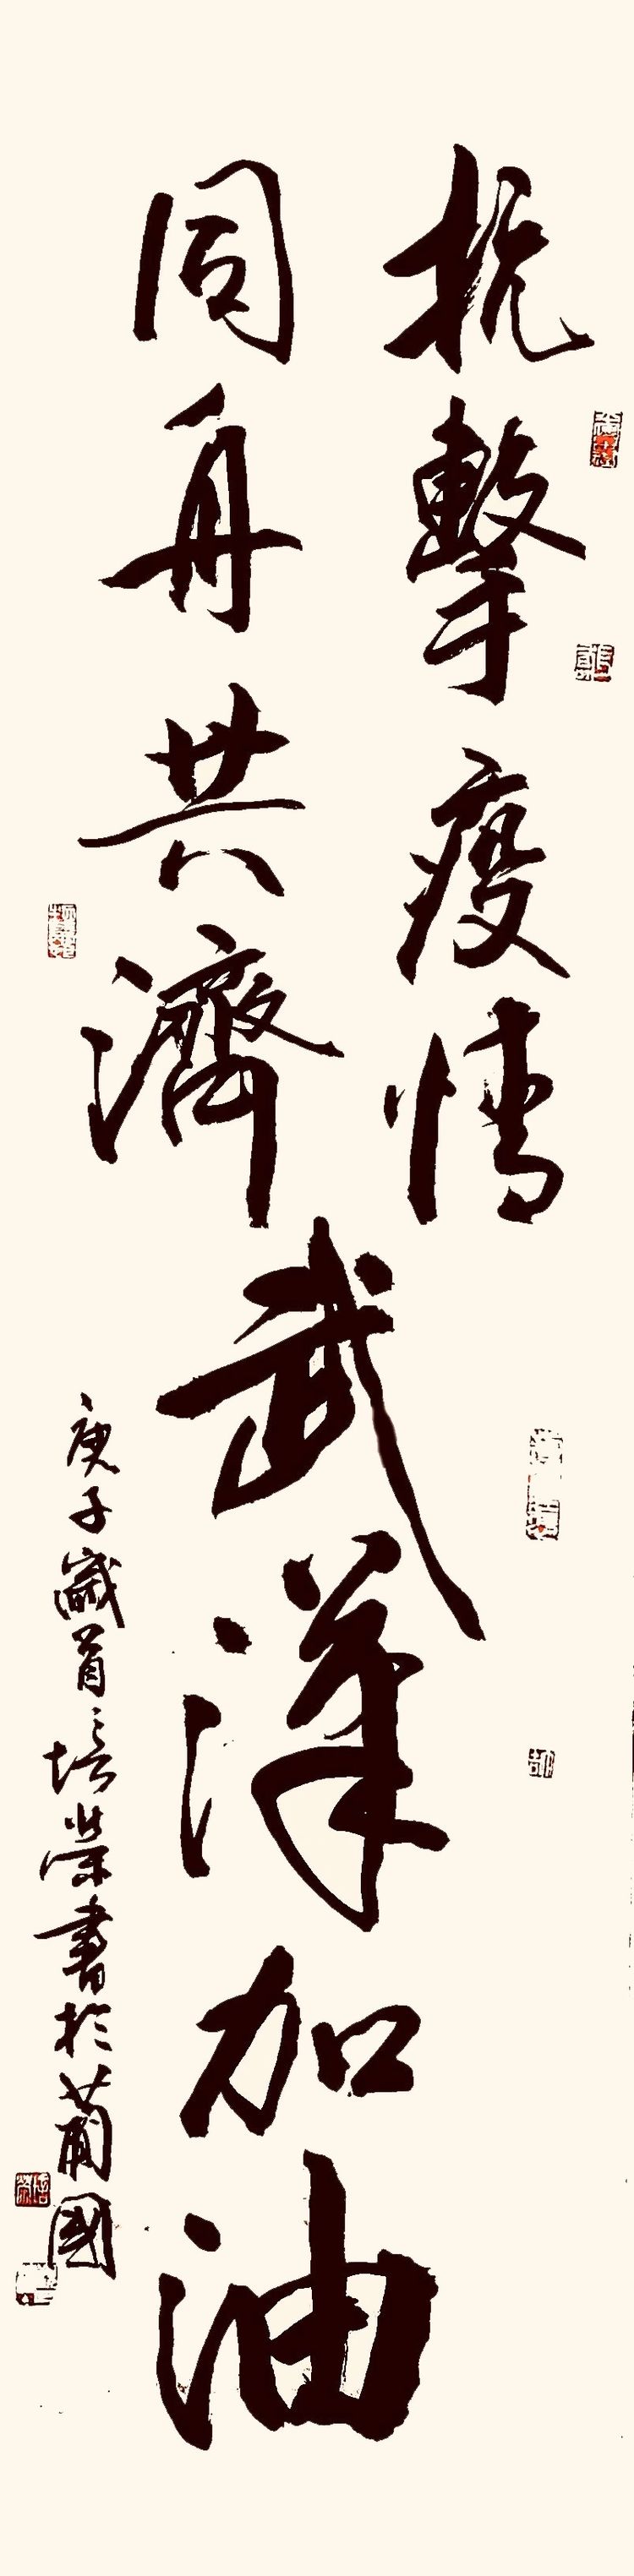 抗擊疫情
同舟共濟
武漢加油
庚子歲首培榮書於葡國